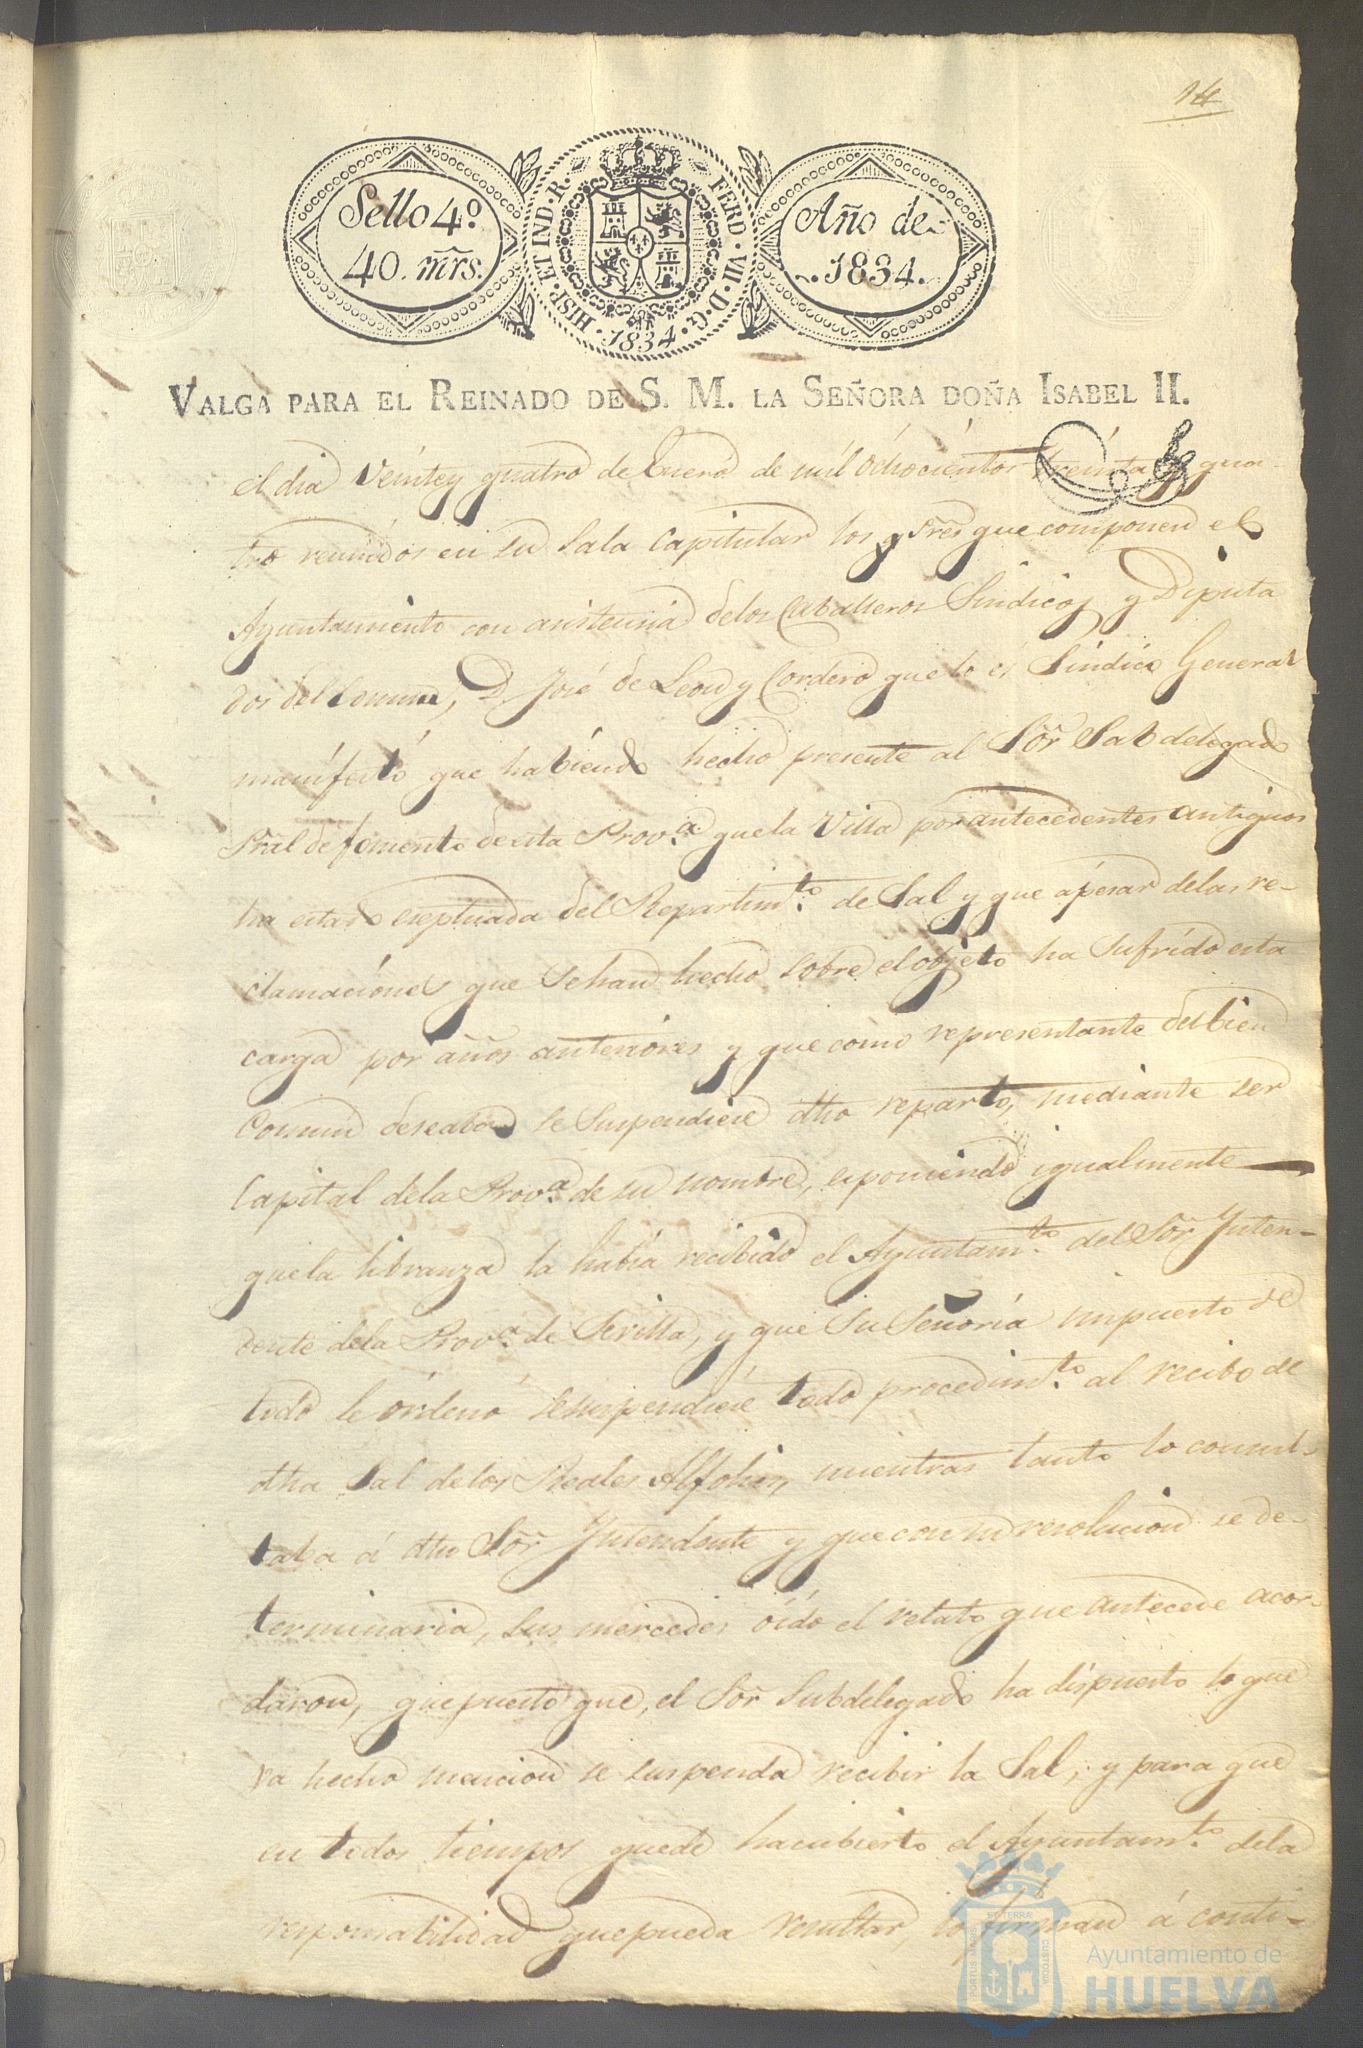 14
Sello 4º
40. mrs.
HISP. ET IND. R. FERD. VII. D. G. 1834
Año de
.1834.
VALGA PARA EL REINADO DE S. M. LA SEÑORA DOÑA ISABEL II.
el dia Veintey quatro de Enero de mil ochocientos treinta y qua-
tro reunidos en su Sala Capitular los Sres que componen el
Ayuntamiento con asistencia delos Caballeros Sindicos y Diputa
dos del Comun, D. José de Leon y Cordero que lo es Sindico General
manifestó que habiendo hecho presente al Sõr Subdelegado
Pral de fomento de esta Prov.ª que la Villa por antecedentes antiguos
ha estado esceptuada del Repartim.to de Sal y que apesar delas re-
clamaciones que Sehan hecho sobre el objeto ha Sufrido esta
carga por años anteriores y que como representante del bien
Comun deseaba se Suspendiese dho reparto, mediante ser
Capital dela Prov.ª de su nombre, esponiendo igualmente
que la libranza la habia recibido el Ayuntam.to del Sõr Inten-
dente dela Prov.ª de Sevilla, y que Su Señoría impuesto de
todo le órdenó sesuspendiese todo procedim.to al recibo de
dha Sal delos Reales Alfolies, mientras tanto lo consul-
taba á dho Sõr Intendente y que con su resolucion se de-
terminaria, sus mercedes óido el relato que antecede acor-
daron, que puesto que, el Sõr Subdelegado ha dispuesto lo que
va hecho mencion se suspenda recibir la Sal, y para que
en todos tiempos quede hacubierto el Ayuntam.to dela
responsabilidad que pueda resultar, lo firman á conti-
PORTUS MARIS ET TERRÆ CUSTODIA
Ayuntamiento de
HUELVA